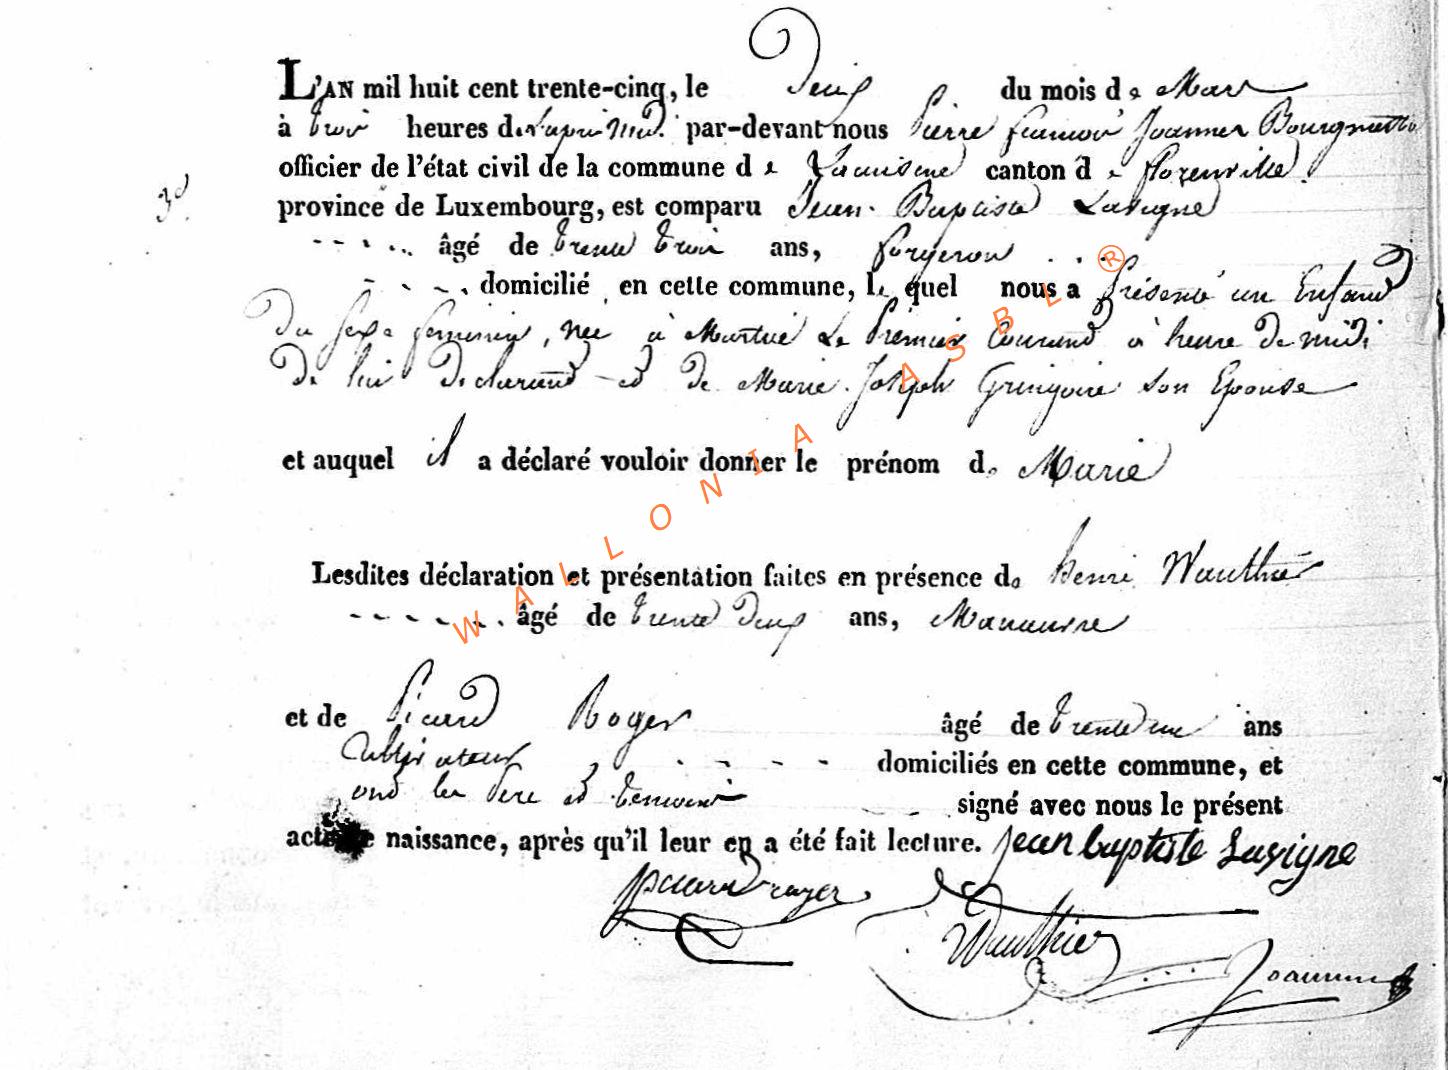 L'AN mil huit cent trente-cinq, le Deux du mois de Mars
à trois heures de l'apres Midi par-devant nous Pierre francois Joannes
officier de l'état civil de la commune de canton de florenville.
3e
province de Luxembourg, est comparu Jean Baptiste Lavigne
âgé de trente trois ans, forgeron
domicilié en cette commune, lequel nous a présenté un Enfant
Du sexe feminin, née à Martué Le Premier Courant à heure De midi
De lui declarant et De Marie Joseph Gringoire son Epouse
et auquel il a déclaré vouloir donner le prénom de Marie
Lesdites déclaration et présentation faites en présence de henri Wauthier
âgé de trente Deux ans, Manœuvre
et de Picard Roger âgé de trente une ans
Cultivateur domiciliés en cette commune, et
ont les Pere et temoins signé avec nous le présent
acte de naissance, après qu'il leur en a été fait lecture. jean baptiste Lavigne
picard roger
Wauthier
Joannes
WALLONIA ASBL ®